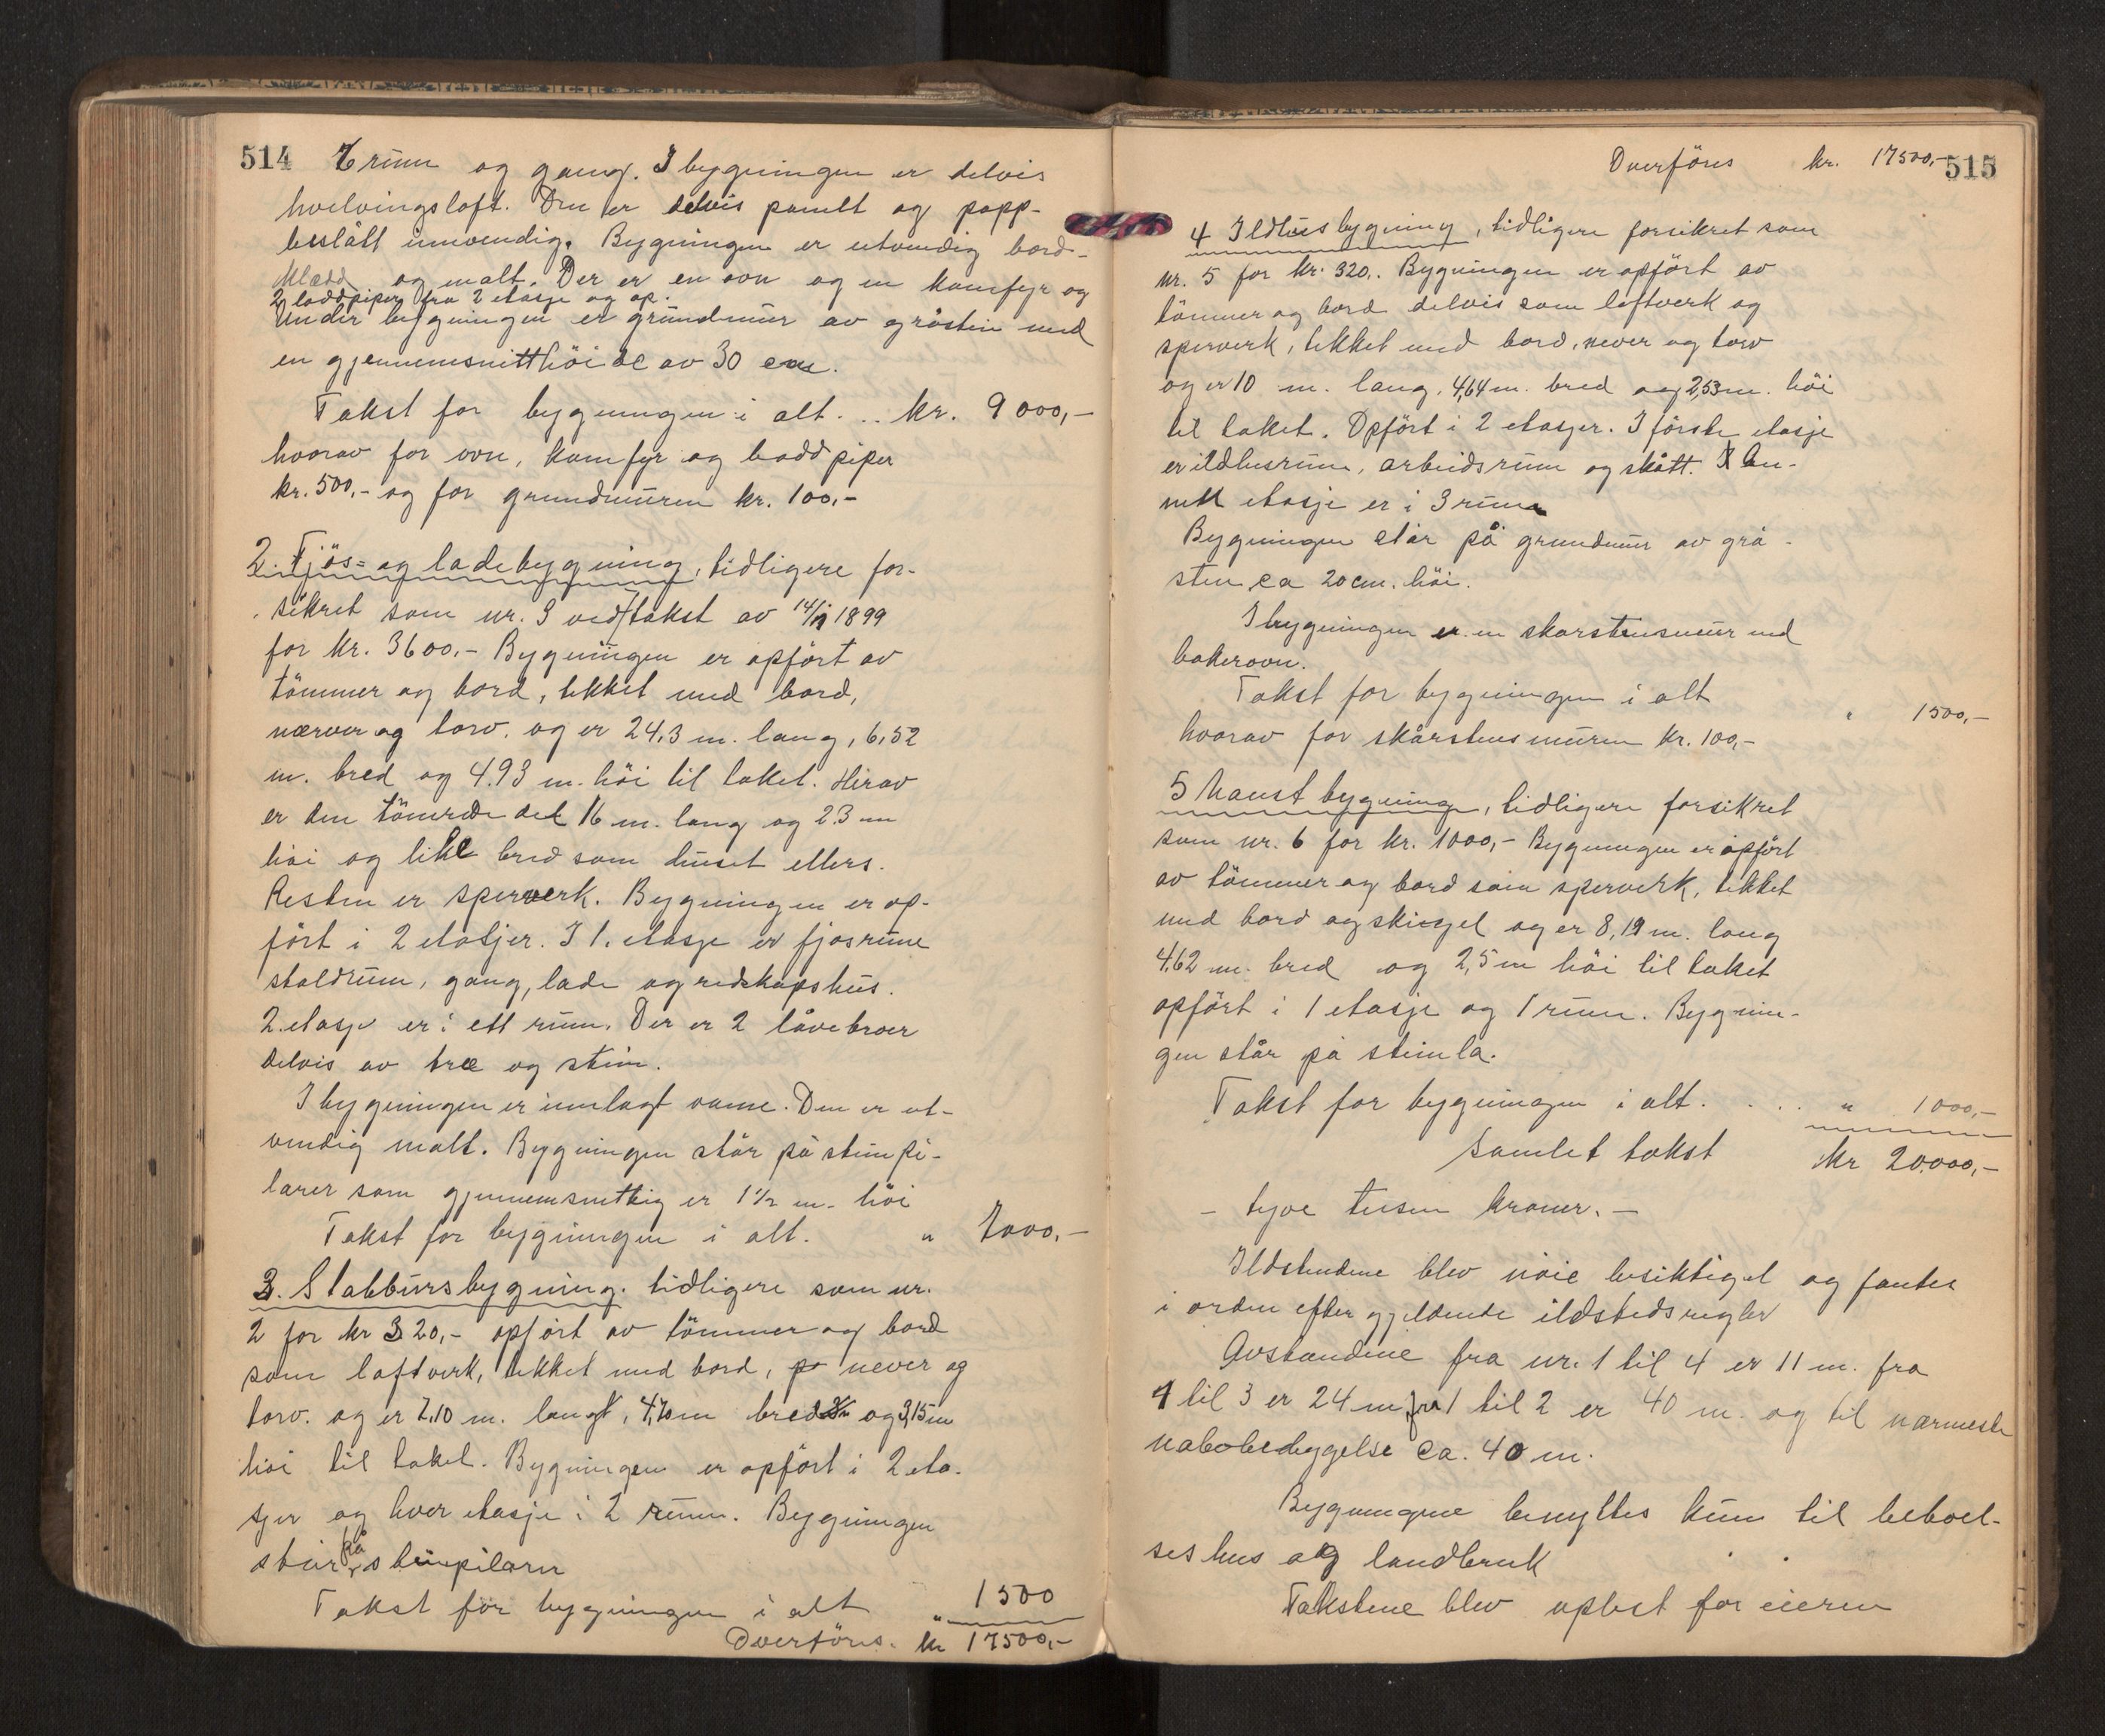 514
7 rum og gang. I bygningen er delvis
hvelvingsloft. Den er delvis panelt og papp-
beslått innvendig. Bygningen er utvendig bord-
klædd og malt. Der er en ovn og en komfyr og
2 loddpiper fra 2 etasje og op.
Under bygningen er grundmur av gråstein med
en gjennemsnitthöide av 30 cm.
Takst for bygningen i alt. .. kr. 9000,-
hvorav for ovn, komfyr og loddpiper
kr. 500,- og for grundmuren kr. 100,-
2. Fjös- og ladebygning, tidligere for-
sikret som nr. 3 ved takst av 14/11 1899
for kr. 3600,- Bygningen er opfört av
tömmer og bord, tekket med bord,
nærver og torv. og er 24,3 m. lang, 6,52
m. bred og 4.93 m. höi til taket. Herav
er den tömrede del 16 m. lang og 2.3 m
höi og like bred som huset ellers.
Resten er sperverk. Bygningen er op-
fört i 2 etasjer. I 1. etasje er fjosrum
staldrum, gang, lade og redskapshus.
2. etasje er i ett rum. Der er 2 låvebroer
delvis av tre og stein.
I bygningen er innlagt vann. Den er ut-
vendig malt. Bygningen står på steinpi-
larer som gjennemsnittlig er 1 1/2 m. höi
Takst for bygningen i alt. " 7000,-
3. Stabbursbygning. tidligere som nr.
2 for kr 320,- opfört av tömmer og bord
som loftverk, tekket med bord, never og
torv. og er 7,10 m. langt, 4,70m bred og 3,15m
höi til taket. Bygningen er opfört i 2 eta-
sjer og hver etasje i 2 rum. Bygningen
står på steinpilarer
Takst for bygningen i alt " 1500
Overföres. kr 17500,-
515
Overföres kr. 17500,-
4 Ildhusbygning, tidligere forsikret som
nr. 5 for kr. 320,. Bygningen er opfört av
tömmer og bord delvis som loftverk og
sperverk, tekket med bord, never og torv
og er 10 m. lang, 4,64 m. bred og 2,53m. höi
til taket. Opfört i 2 etasjer. I förste etasje
er ildhusrum, arbeidsrum og skått. An-
nen etasje er i 3 rum
Bygningen står på grundmur av grå-
sten ca 20 cm. höi.
I bygningen er en skorstensmur med
bakerovn.
Takst for bygningen i alt " 1500,-
hvorav for skårstensmuren kr. 100,-
5 Naustbygning, tidligere forsikret
som nr. 6 for kr. 1000,- Bygningen er opfört
av tömmer og bord som sperverk, tekket
med bord og skiegel og er 8,19 m. lang
4,62 m. bred og 2,5 m höi til taket
opfört i 1 etasje og 1 rum. Bygnin-
gen står på steinla.
Takst for bygningen i alt. . . . " 1000,-
Samlet takst kr 20.000,-
- tyve tusen kroner. -
Ildstedene blev nöie besiktiget og fantes
i orden efter gjeldende ildstedsregler
Avstandene fra nr. 1 til 4 er 11 m. fra
4 til 3 er 24 m fra 1 til 2 er 40 m. og til nærmeste
nabobebyggelse ca. 40 m.
Bygningene benyttes kun til beboel-
seshus og landbruk
Takstene blev oplest for eieren